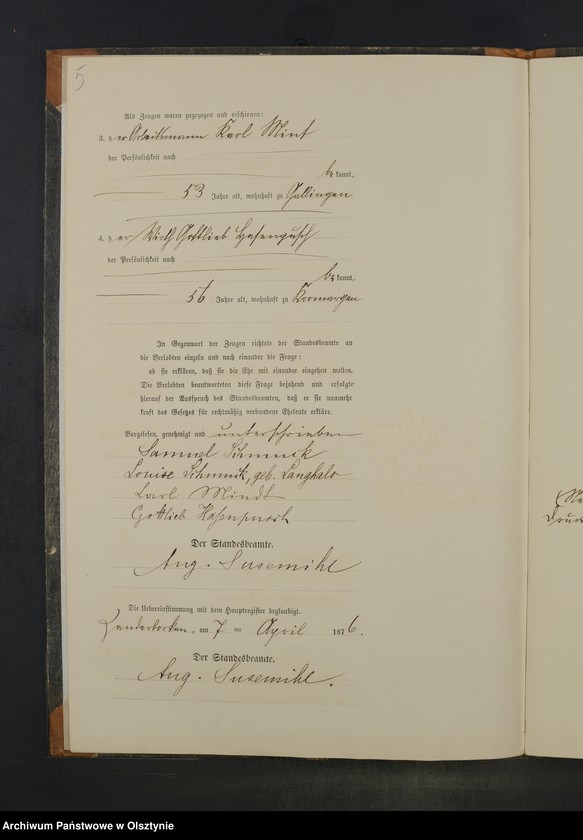 5
Als Zeugen waren zugezogen und erschienen:
3. der Arbeitsmann Karl Mint
der Persönlichkeit nach
be kannt,
53 Jahre alt, wohnhaft zu Gallingen
4. der Wirth Gottlieb Hasenpusch
der Persönlichkeit nach
be kannt,
56 Jahre alt, wohnhaft zu
In Gegenwart der Zeugen richtete der Standesbeamte an
die Verlobten einzeln und nach einander die Frage:
ob sie erklären, daß sie die Ehe mit einander eingehen wollen.
Die Verlobten beantworteten diese Frage bejahend und erfolgte
hierauf der Ausspruch des Standesbeamten, daß er sie nunmehr
kraft des Gesetzes für rechtmäßig verbundene Eheleute erkläre.
Vorgelesen, genehmigt und unterschrieben
Samuel Schmnik
Louise Schmnik, geb. Langhals
Carl Mindt
Gottlieb Hasenpusch
Der Standesbeamte.
Aug. Susemihl
Die Uebereinstimmung mit dem Hauptregister beglaubigt.
am 7 ten April 1876.
Der Standesbeamte.
Aug. Susemihl.
Archiwum Państwowe w Olsztynie